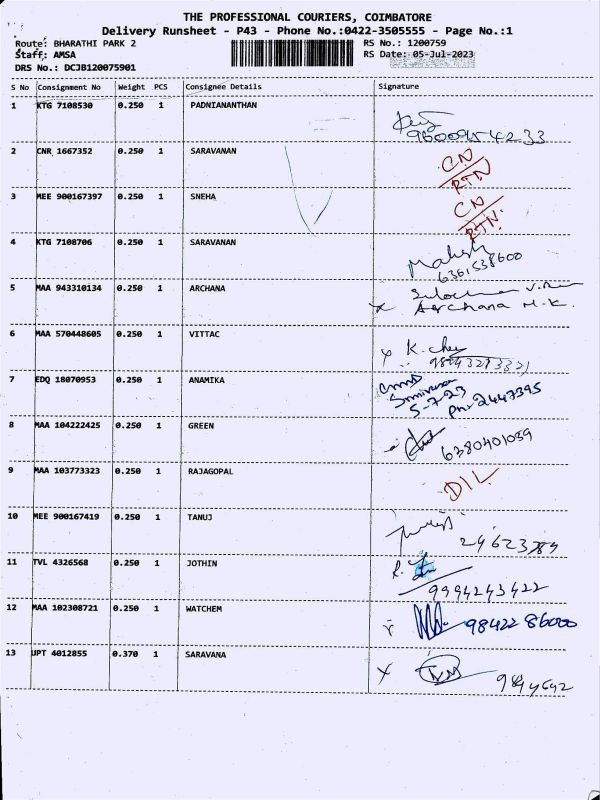 THE PROFESSIONAL COURIERS, COIMBATORE
Delivery Runsheet - P43 - Phone No.:0422-3505555 - Page No.:1
Route: BHARATHI PARK 2 RS No.: 1200759
Staff: AMSA RS Date: 05-Jul-2023
DRS No.: DCJB120075901
S No Consignment No Weight PCS Consignee Details Signature
1 KTG 7108530 0.250 1 PADNIANANTHAN
2 CNR 1667352 0.250 1 SARAVANAN CN
RTN
3 MEE 900167397 0.250 1 SNEHA CN
RTN.
4 KTG 7108706 0.250 1 SARAVANAN Mahesh
6361538600
5 MAA 943310134 0.250 1 ARCHANA
x Archana M.K.
6 MAA 570448605 0.250 1 VITTAC x K.
7 EDQ 18070953 0.250 1 ANAMIKA
5-7-23
2447395
8 MAA 104222425 0.250 1 GREEN 6380401039
9 MAA 103773323 0.250 1 RAJAGOPAL DIL
10 MEE 900167419 0.250 1 TANUJ
11 TVL 4326568 0.250 1 JOTHIN R.
9994243422
12 MAA 102308721 0.250 1 WATCHEM 98422 86000
13 UPT 4012855 0.370 1 SARAVANA x